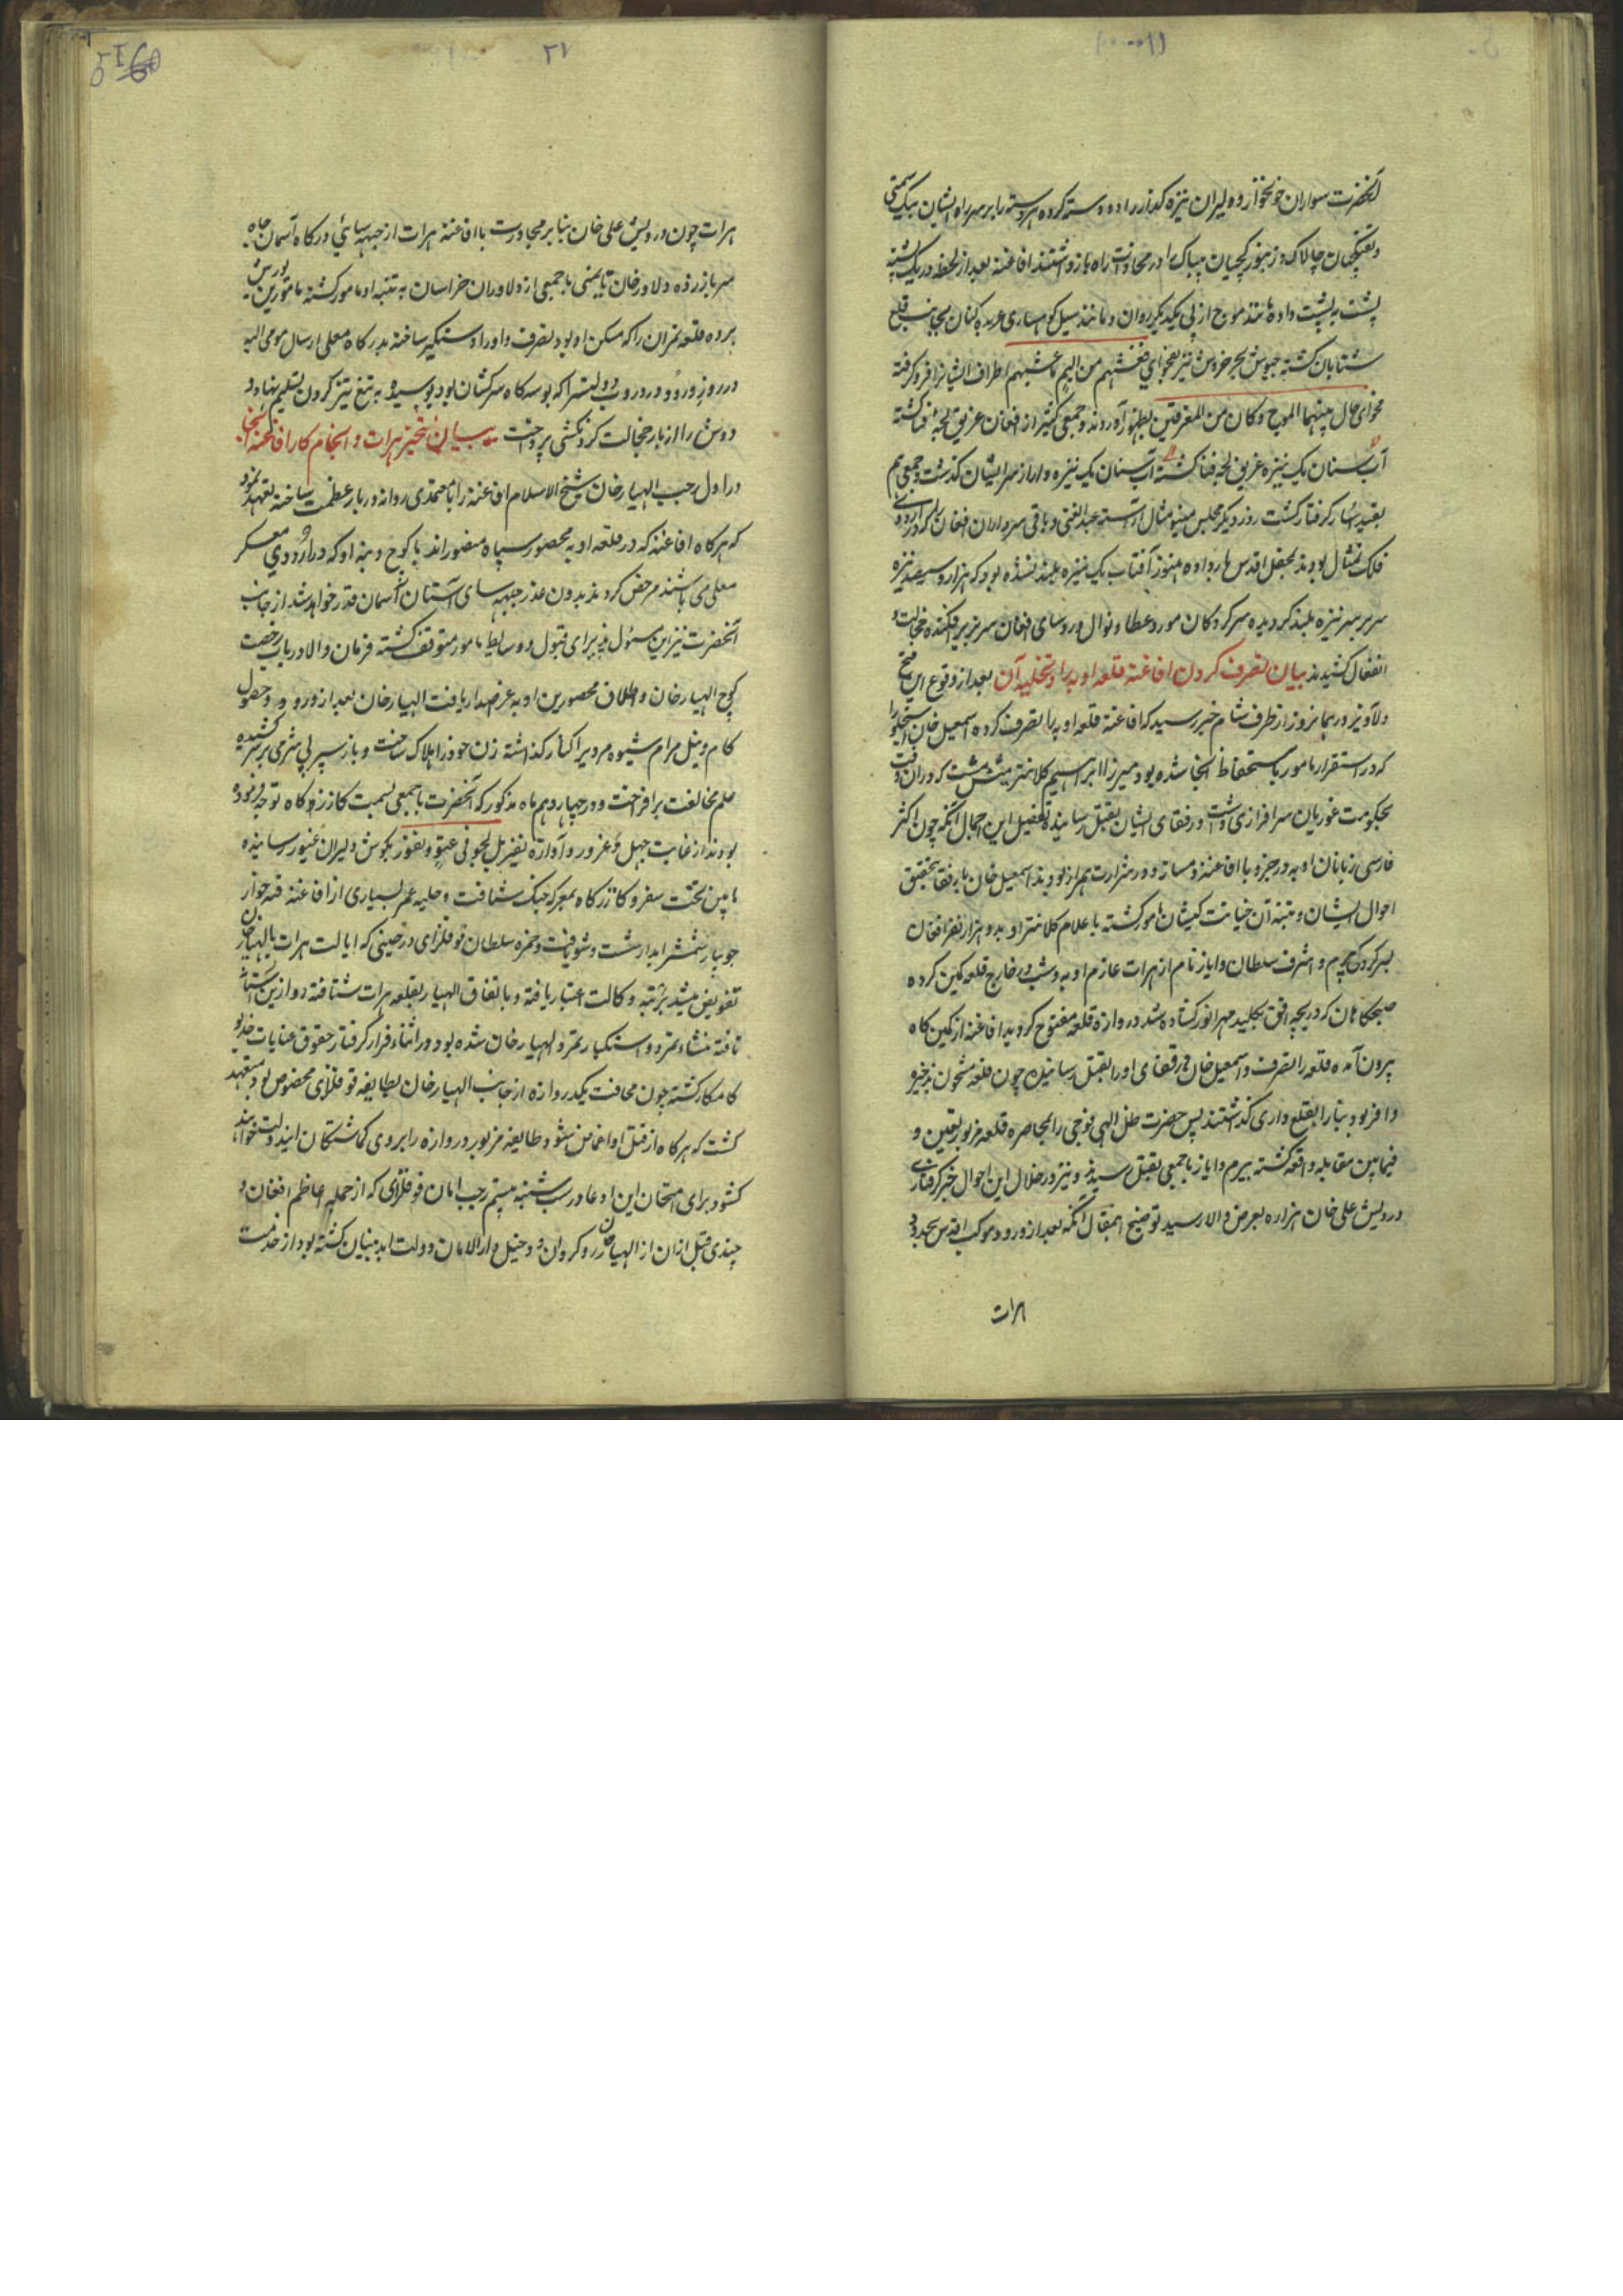 آنحضرت سواران خونخوار و دلیران نیزه گذار را ده دسته کرده هر دسته را بر سر راه ایشان بیک سمتی
و تفنگچیان چالاک و زنبورکچیان بیباک را در محاذات راه باز داشتند افاغنه بعد از لحظه در یک شنبه
پشت به پشت داده مانند موج از پی یکدیگر روان و مانند سیل کوهساری عربده کنان بجانب قلعه
شتابان گشته جیوش بحر خروش نیز بفحوای فغشیهم من الیم ما غشیهم اطراف ایشانرا فرو گرفته
فحوای حال بینهما الموج و کان من المغرقین بظهور آوردند و جمعی کثیر از افغان غریق لجه فنا گشته
آب سنان یک نیزه غریق لجه فنا گشته آب سنان یک نیزه وار از سر ایشان گذشت و جمعی هم
بقید اسار گرفتار گشت روز دیگر مجلس مینو مثال آراسته عبدالغنی و باقی سرداران افغان را که در اردوی
فلک تمثال بودند بمحفل اقدس بار داده هنوز آفتاب یک نیزه بلند نشده بود که هزار و سیصد نیزه
سر بر سر نیزه بلند گردیده سرکردگان مورد عطا و نوال و روسای افغان سر بزیر افکنده خجالت و
انفعال گشیدند بیان تصرف کردن افاغنه قلعه اوبه را و تخلیه آن بعد از وقوع این فتح
دلاویز در همانروز از طرف شام خبر رسید که افاغنه قلعه اوبه را تصرف کرده اسمعیل خان استجلو را
که در استقرار مامور باستحفاظ انجا شده بود میرزا ابراهیم کلانتر مشت که در ان وقت
بحکومت غوریان سرافرازی داشت و رفقای ایشان بقتل رسانیده تفصیل این اجمال آنکه چون اکثر
فارسی زبانان اوبه در جزو با افاغنه دمساز و در شرارت همراز بودند اسمعیل خان با رفقا بتحقیق
احوال ایشان و تنبیه آن خیانت کیشان مامور گشته باعلام کلانتر اوبه دو هزار نفر افغان
بسرکردگی بیرم و اشرف سلطان و ایاز نام از هرات عازم اوبه و شب در خارج قلعه کمین کرده
صبحگاهان که دریچه افق بکلید مهر انور گشاده شد دروازه قلعه مفتوح گردید افاغنه از کمین گاه
بیرون آمده قلعه را تصرف و اسمعیل خان و رفقای او را بقتل رسانیدند چون قلعه مشحون بذخیره
وافر بود بنا را بقلعه داری گذاشتند پس حضرت ظل الهی فوجی را بمحاصره قلعه مزبور تعیین و
فیمابین مقابله واقعه گشته بیرم و ایاز با جمعی بقتل رسیدند و نیز در خلال این احوال خبر گرفتاری
درویش علی خان هزاره بعرض والا رسید توضیح اینمقال آنکه بعد از ورود موکب اقدس بحدود
هرات
۲۷
هرات چون درویش علی خان بنا بر مجاورت با افاغنه هرات از جبهه سائی درگاه آسمان جاه
سر باز زده دلاور خان تایمنی با جمعی از دلاوران خراسان به تنبیه او مامور گشته مامورین یورش
برده قلعه نمران را که مسکن او بود تصرف و او را دستگیر ساخته بدرگاه معلی ارسال مومی الیه
در روز ورود در دروب دولتسرا که بوسه گاه سرکشان بود بوسیده به تیغ تیز گردن تسلیم نهاد و
دوش را از بار خجالت گردنکشی پرداخت بیان تسخیر هرات و انجام کار افاغنه انجا
در اول رجب الهیار خان شیخ الاسلام افاغنه را با معتمدی روانه دربار عظمت ساخته تعهد نمود
که هرگاه افاغنه که در قلعه اوبه محصور سپاه منصور اند با کوچ و بنه او که در اردوی معسکر
معلی می باشند مرخص گردند بدون عذر جبهه سای آستان آسمان قدر خواهد شد از جانب
آنحضرت نیز این مسئول پذیرای قبول و وسایط مامور متوقف گشته فرمان والا در باب رخصت
کوچ الهیار خان و اطلاق محصورین اوبه عز اصدار یافت الهیار خان بعد از ورود و حصول
کام و نیل مرام شیوه مردیرا کنار گذاشته زن خود را هلاک ساخت و باز سپر بی شرمی بر سر کشیده
علم مخالفت برافراخت و در چهاردهم ماه مذکور که آنحضرت با جمعی بسمت کازرگاه توجه فرموده
بودند از غایت جهل و غرور و آوازه نفیر بل لجوا فی عتو و نفور بگوش دلیران غیور رسانیده
مابین تخت سفر و کازرگاه بمعرکه جنگ شتافت و حلیه عمر بسیاری از افاغنه قد جوار
جویبار شمشیر آبدار شست و شو یافت و حمزه سلطان فوفلزای در حینی که ایالت هرات بالهیار خان
تفویض میشد برتبه وکالت اعتبار یافته و باتفاق الهیار بقلعه هرات شتافته و از این آستان
تافته منشاء تمرد و استکبار تمرد الهیار خان شده بود در اثناء فرار گرفتار حقوق عنایات خدیو
کامکار گشته چون محافظت یکدروازه از جانب الهیار خان بطایفه فوفلزای مخصوص بود متعهد
گشت که هرگاه از قتل او اغماض شود طایفه مزبور دروازه را بروی گماشتگان این دولت خواهند
گشود برای امتحان این ادعا در شب شنبه بیستم رجب امان فوفلزای که از جمله اعاظم افغان و
چندی قبل از ان از الهیار خان رو گردان و دخیل دار الامان دولت ابد بنیان گشته بود از خدمت